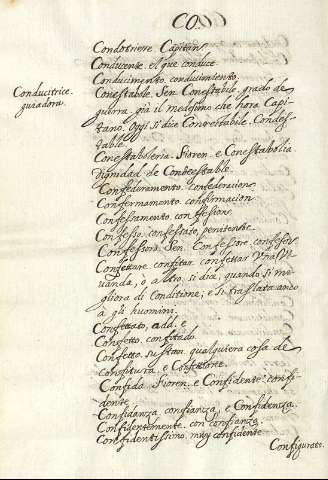 CO.
Condottiere. Capitan.
Conducente. el que conduce
Conducimento. conducimiento.
Conductrice.
guiadora.
Conestabole. Sen. Conestabile, grado de
guerra già il medesimo che hora Capi-
tano. Oggi si dice Contestabile. Condes-
table.
Conestaboleria. Fioren. e Conestabolia
dignidad de Condestable.
Confederamento. confederacion
Confermamento confirmacion
Confessamento. confession.
Confesso. confessato, penitente
Confessoro. Sen. Confessore. confessor
Confettare confitar confettar una vi-
uanda, o altro si dice, quando si mi-
gliora di Conditione, e si traslata anco
a gli huomini.
Confettato, add. e
Confetto, confitado.
Confetto sustan. qualquiera cosa de
confitura. e Confezione.
Confida. Fioren. e Confidente confi-
dente
Confidanza confianza, e Confidenza.
Confidentemente. con confianza.
Confidentissimo. muy confidente